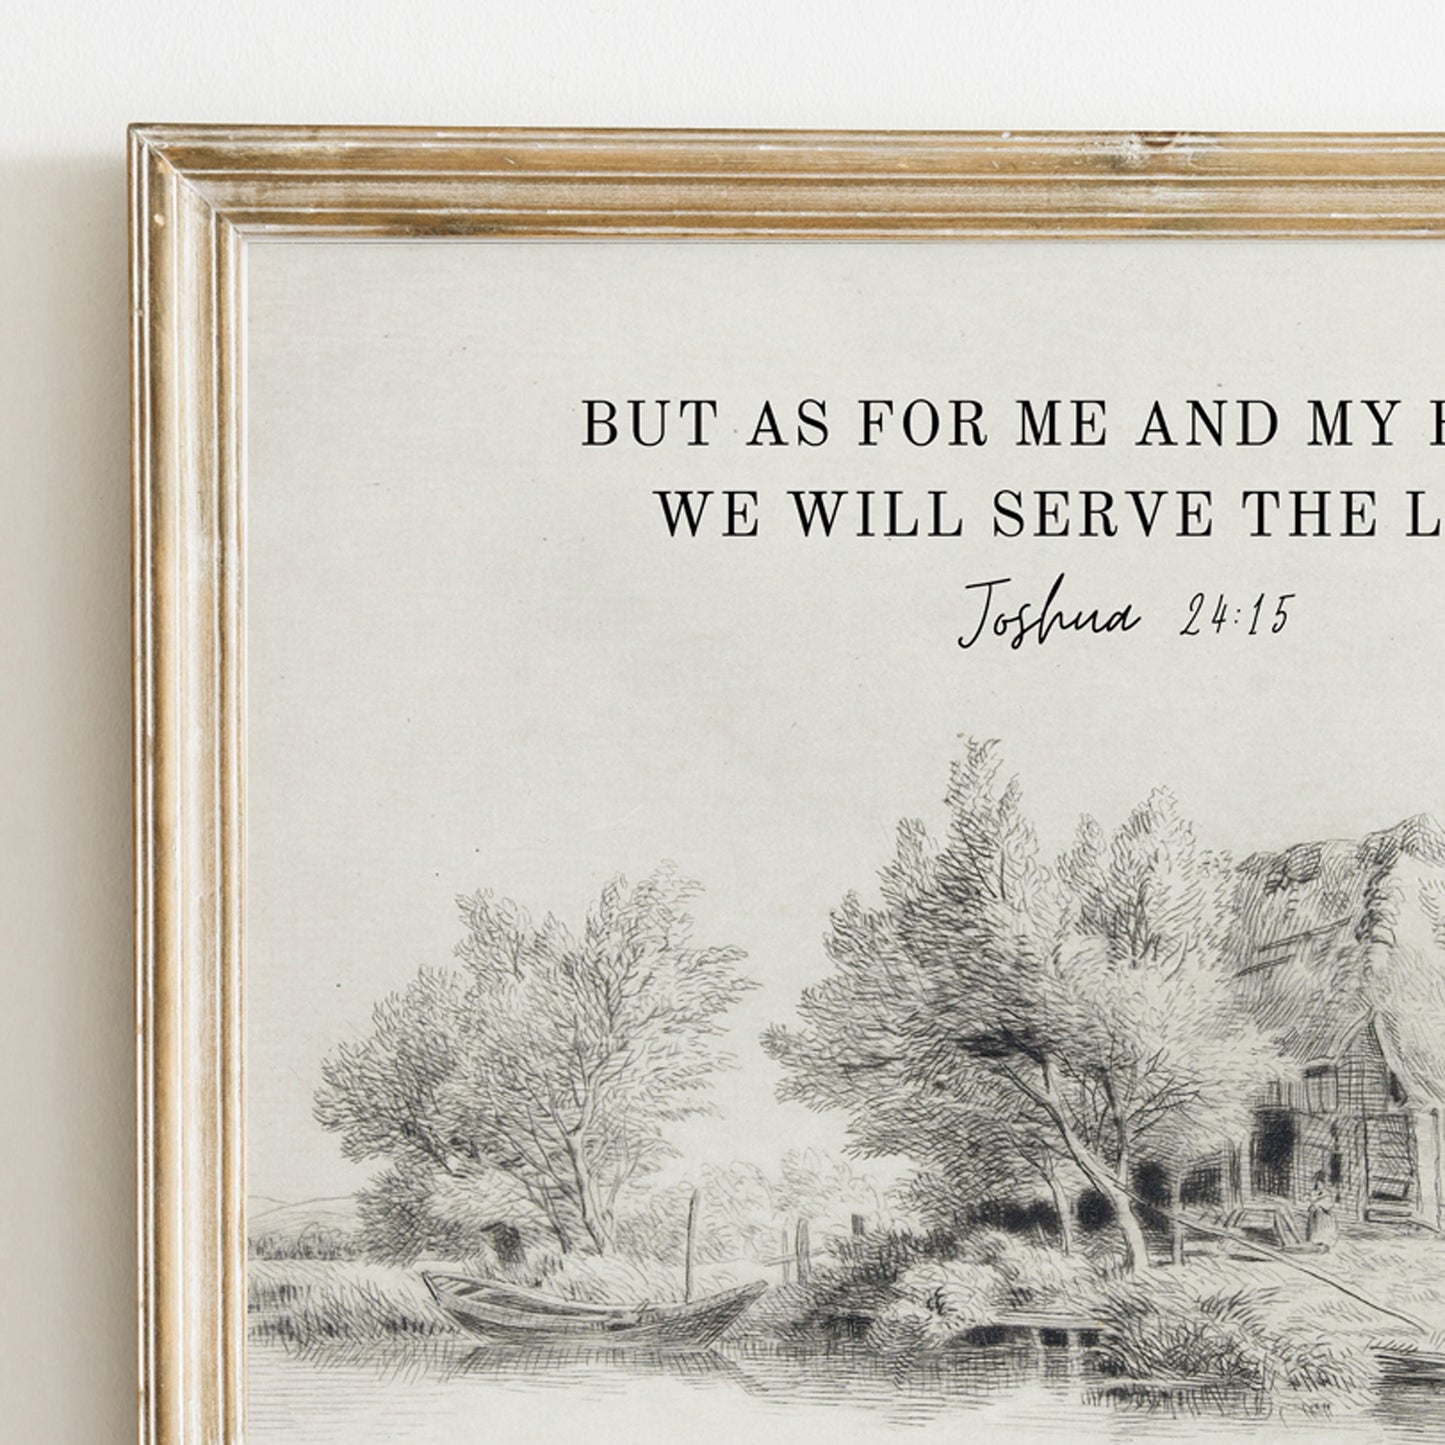 BUT AS FOR ME AND MY
WE WILL SERVE THE
Joshua 24:15